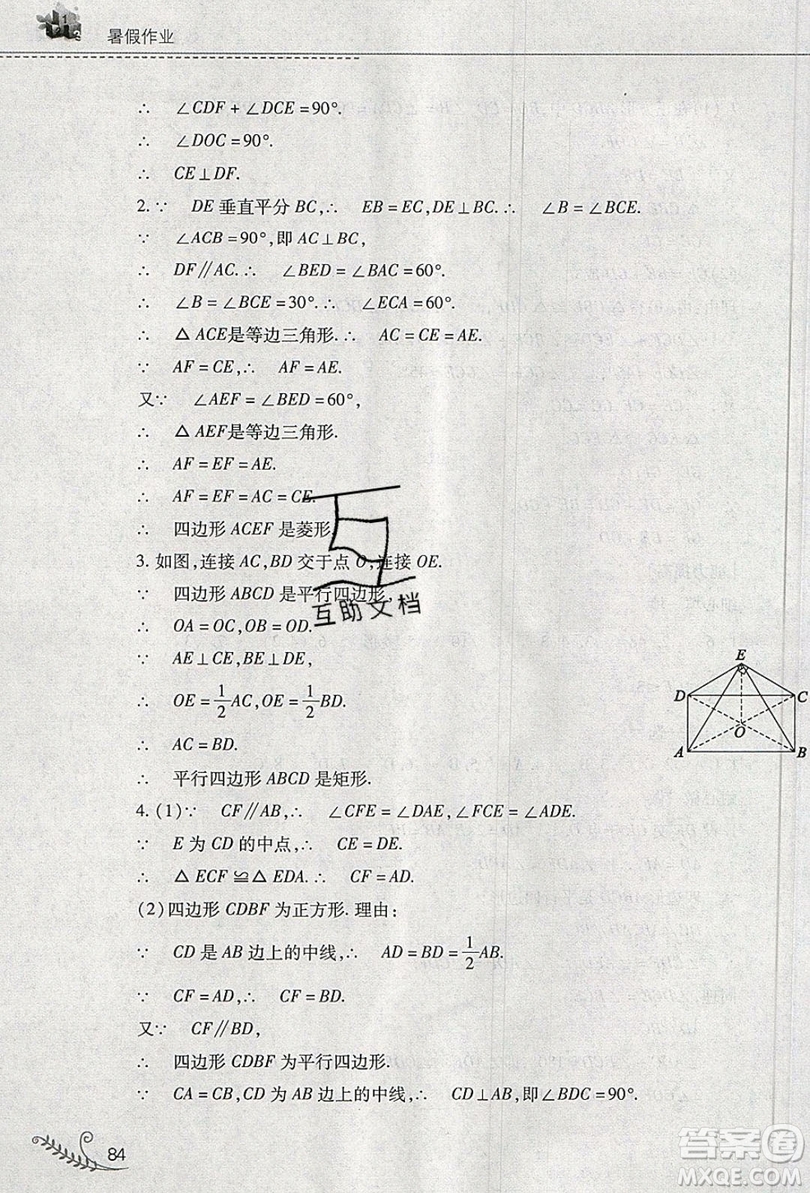 暑假作业
∴ ∠CDF+∠DCE=90°.
∴ ∠DOC=90°.
∴ CE⊥DF.
2. ∵ DE垂直平分BC,∴ EB=EC,DE⊥BC.∴ ∠B=∠BCE.
∵ ∠ACB=90°,即AC⊥BC,
∴ DF∥AC.∴ ∠BED=∠BAC=60°.
∴ ∠B=∠BCE=30°.∴ ∠ECA=60°.
∴ △ACE是等边三角形.∴ AC=CE=AE.
∵ AF=CE,∴ AF=AE.
又∵ ∠AEF=∠BED=60°,
∴ △AEF是等边三角形.
∴ AF=EF=AE.
∴ AF=EF=AC=CE.
∴ 四边形ACEF是菱形.
3. 如图,连接AC,BD交于点O,连接OE.
∵ 四边形ABCD是平行四边形,
∴ OA=OC,OB=OD.
∵ AE⊥CE,BE⊥DE,
∴ OE=1/2AC,OE=1/2BD.
∴ AC=BD.
∴ 平行四边形ABCD是矩形.
E
D
C
O
A
B
4. (1)∵ CF∥AB,∴ ∠CFE=∠DAE,∠FCE=∠ADE.
∵ E为CD的中点,∴ CE=DE.
∴ △ECF≌△EDA.∴ CF=AD.
(2)四边形CDBF为正方形.理由:
∵ CD是AB边上的中线,∴ AD=BD=1/2AB.
∵ CF=AD,∴ CF=BD.
又∵ CF∥BD,
∴ 四边形CDBF为平行四边形.
∵ CA=CB,CD为AB边上的中线,∴ CD⊥AB,即∠BDC=90°.
84
互助文档
答案圈
MXQE.COM